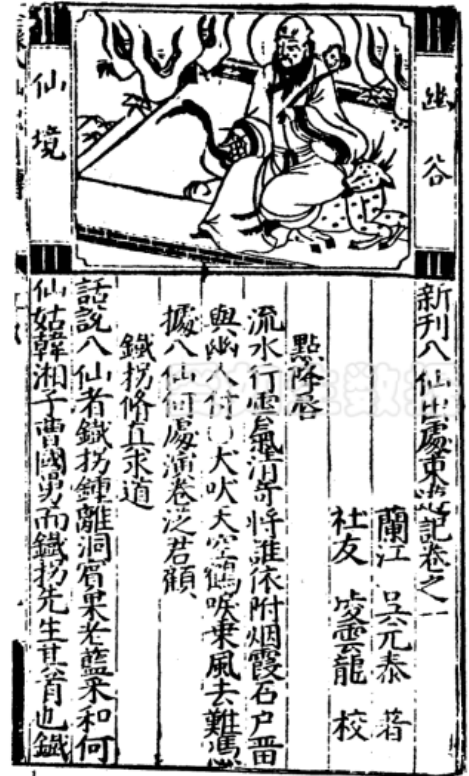 幽谷
仙境
新刊八仙出處東遊記卷之一
蘭江 吳元泰 著
社友 凌雲龍 校
點降唇
流水行雲氣清奇將誰依附烟霞石户畱
與幽人付犬吠天空鶴唳乗風去難憑
據八仙何處演卷泛君顧
鐵拐脩真求道
話說八仙者鐵拐鍾離洞賓果老藍采和何
仙姑韓湘子曹國舅而鐵拐先生其首也鐵